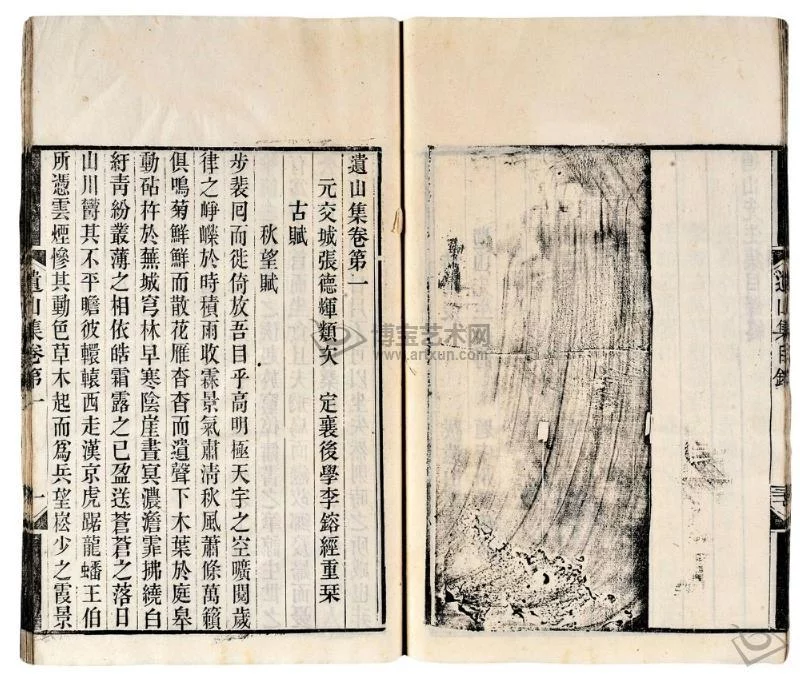 遺山集目錄
遺山集卷第一
元交城張德輝類次 定襄後學李鎔經重栞
古賦
秋望賦
步裴囘而徙倚放吾目乎高明極天宇之空曠閱歲
律之崢嶸於時積雨收霖景氣肅清秋風蕭條萬籟
俱鳴菊鮮鮮而散花雁杳杳而遺聲下木葉於庭皋
動砧杵於蕪城穹林早寒陰崖晝冥濃澹霏拂繞白
紆青紛叢薄之相依皓霜露之已盈送蒼蒼之落日
山川鬱其不平瞻彼轘轅西走漢京虎踞龍蟠王伯
所憑雲煙慘其動色草木起而爲兵望崧少之霞景
遺山集卷第一
一
博宝艺术网
www.artxun.com